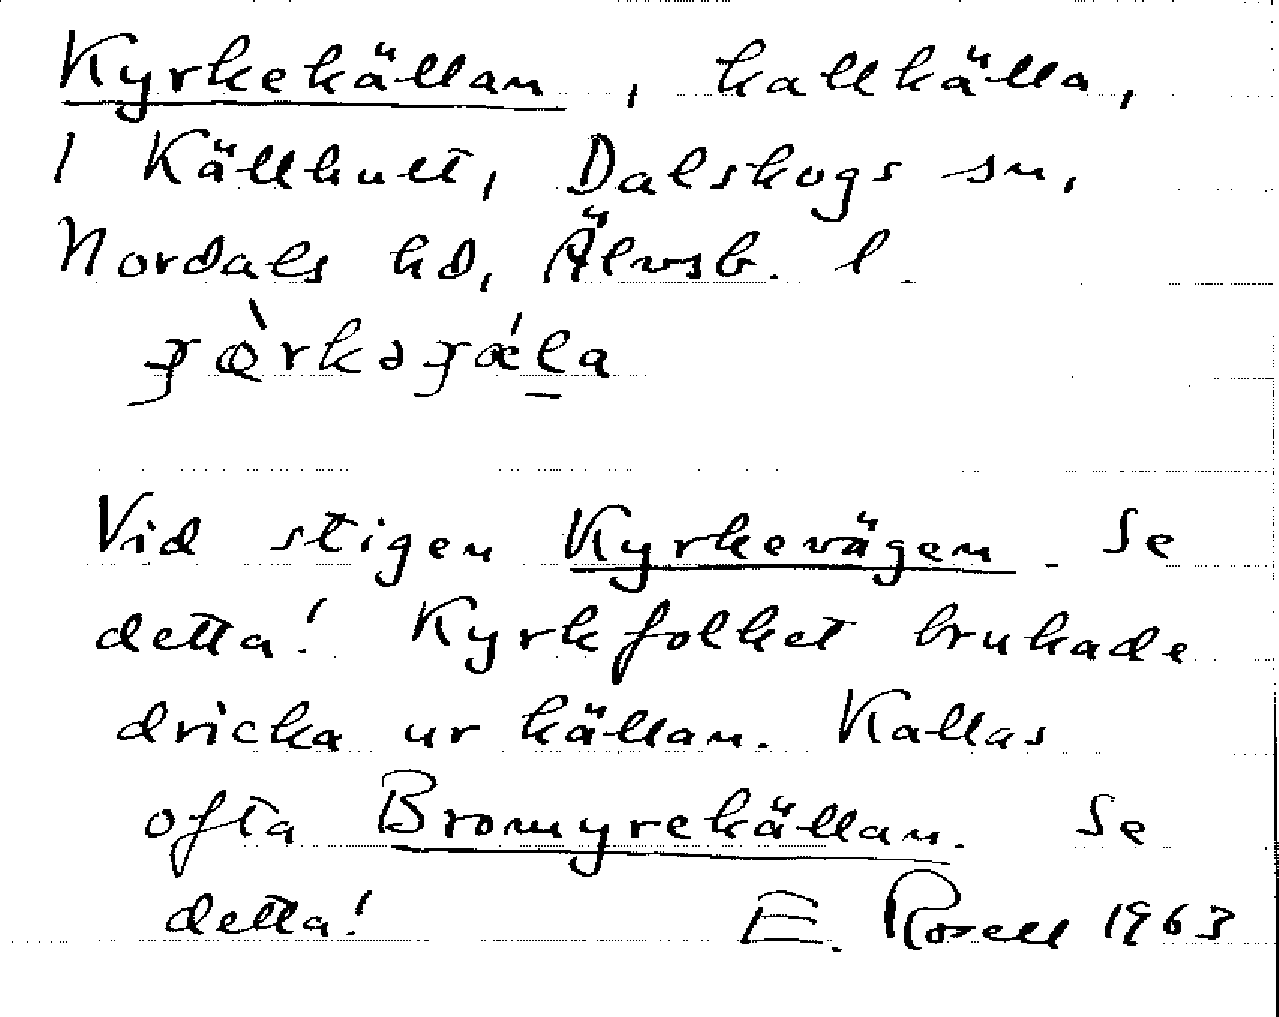 Kyrkekällan, kallkälla,
1 Källhult, Dalskogs sn,
Nordals hd, Älvsb. l.
Vid stigen Kyrkevägen. Se
detta! Kyrkfolket brukade
dricka ur källan. Kallas
ofta Bromyrekällan. Se
detta! E. Rosell 1963